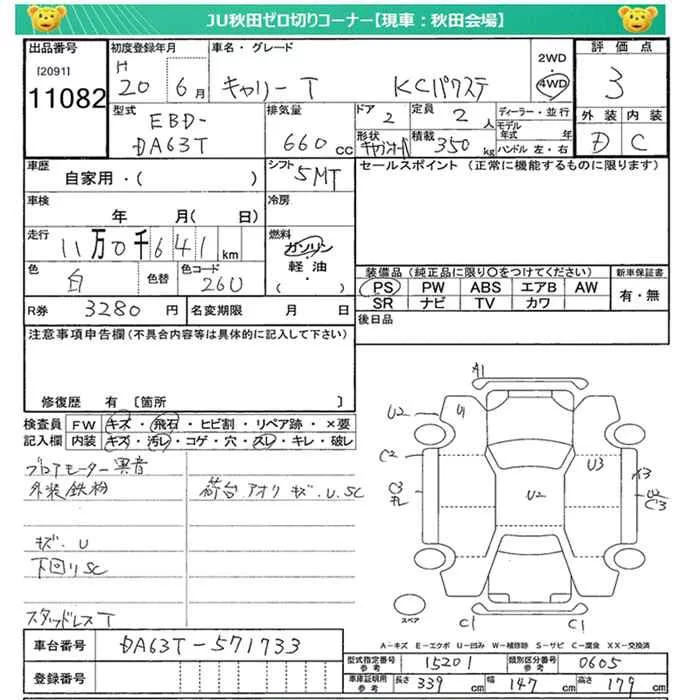 JU秋田ゼロ切りコーナー【現車：秋田会場】
出品番号 [2091] 11082
初度登録年月 H 20 6月
車名・グレード キャリー T KCパワステ
2WD 4WD
評価点 3
外装 D 内装 C
型式 EBD-DA63T
排気量 660 cc
ドア 2
定員 2 人
形状
積載 350 kg
ディーラー・並行
モデル年式 年
ハンドル 左・右
車歴 自家用・( )
シフト 5MT
セールスポイント (正常に機能するものに限ります)
車検 年 月( 日)
冷房
走行 11万0千641km
燃料 ガソリン・軽油・( )
色 白 色替 色コード 26U
装備品 (純正品に限り○をつけてください)
PS PW ABS エアB AW
SR ナビ TV カワ
新車保証書 有・無
R券 3280 円
名変期限 月 日
後日品
注意事項申告欄(不具合内容等は具体的に記入して下さい)
修復歴 有 〔箇所 〕
検査員記入欄
FW キズ・飛石・ヒビ割・リペア跡・×要
内装 キズ・汚レ・コゲ・穴・スレ・キレ・破レ
ブロアモーター異音
外装鉄粉 荷台アオリ キズ.U.SC
キズ.U
下回りSC
スタッドレスT
A1
U2
U1
C2
U3
C3
U2
U2
C3
C1
C1
スペア
A－キズ E－エクボ U－凹み W－補修跡 S－サビ C－腐食 XX－交換済
車台番号 DA63T-571733
登録番号
型式指定番号 参考 15201
類別区分番号 参考 0605
車庫証明用 参考 長さ 339 cm 幅 147 cm 高さ 179 cm